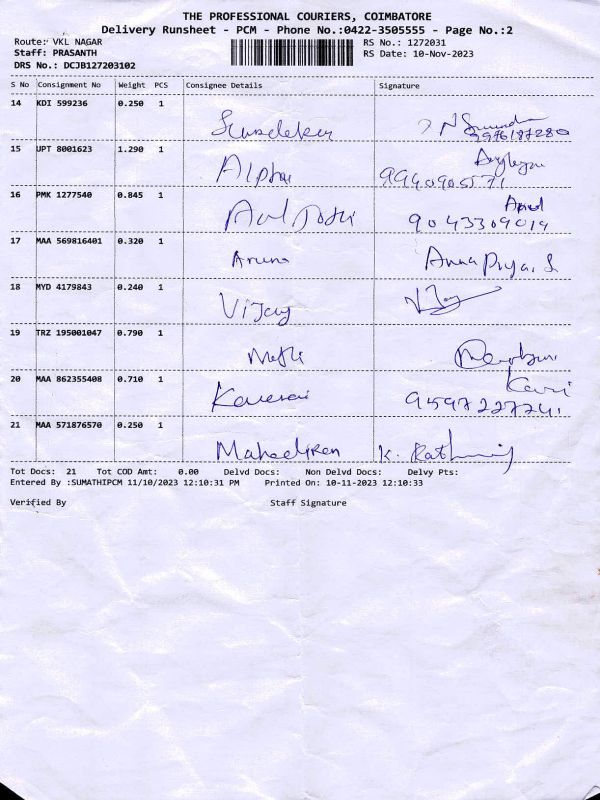 THE PROFESSIONAL COURIERS, COIMBATORE
Delivery Runsheet - PCM - Phone No.:0422-3505555 - Page No.:2
Route: VKL NAGAR RS No.: 1272031
Staff: PRASANTH RS Date: 10-Nov-2023
DRS No.: DCJB127203102
S No Consignment No Weight PCS Consignee Details Signature
14 KDI 599236 0.250 1
9976187280
15 UPT 8001623 1.290 1 Alpha
9940905571
16 PMK 1277540 0.845 1
9043309019
17 MAA 569816401 0.320 1 Aruna Anna Priya. S
18 MYD 4179843 0.240 1 Vijay
19 TRZ 195001047 0.790 1
20 MAA 862355408 0.710 1 Kaveri
9597227741
21 MAA 571876570 0.250 1 K.
Tot Docs: 21 Tot COD Amt: 0.00 Delvd Docs: Non Delvd Docs: Delvy Pts:
Entered By :SUMATHIPCM 11/10/2023 12:10:31 PM Printed On: 10-11-2023 12:10:33
Verified By Staff Signature